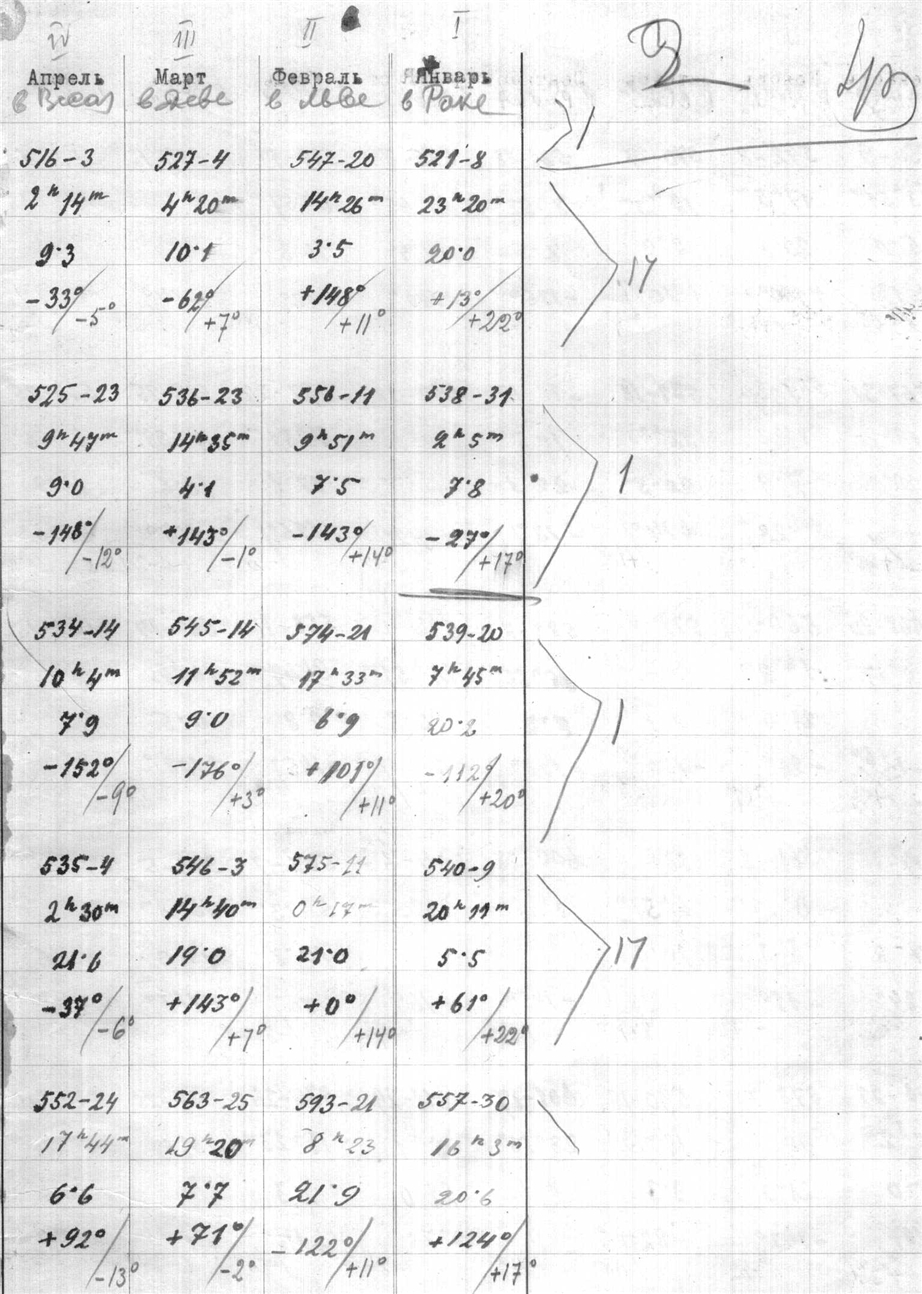 IV III II I
Апрель Март Февраль Январь
в Весах в Деве в Льве в Раке
1
516-3 527-4 547-20 521-8
2ʰ14ᵐ 4ʰ20ᵐ 14ʰ26ᵐ 23ʰ20ᵐ
9·3 10·1 3·5 20·0
17
-33°/-5° -62°/+7° +148°/+11° +13°/+22°
525-23 536-23 556-11 538-31
9ʰ47ᵐ 14ʰ35ᵐ 9ʰ51ᵐ 2ʰ5ᵐ
9·0 4·1 7·5 7·8 1
-148°/-12° +143°/-1° -143°/+14° -27°/+17°
534-14 545-14 574-21 539-20
10ʰ4ᵐ 11ʰ52ᵐ 17ʰ33ᵐ 7ʰ45ᵐ
7·9 9·0 6·9 20·2 1
-152°/-9° -176°/+3° +101°/+11° -112°/+20°
535-4 546-3 575-11 540-9
2ʰ30ᵐ 14ʰ40ᵐ 0ʰ17ᵐ 20ʰ11ᵐ
21·6 19·0 21·0 5·5 17
-37°/-6° +143°/+7° +0°/+14° +61°/+22°
552-24 563-25 593-21 557-30
17ʰ44ᵐ 19ʰ20ᵐ 8ʰ23 16ʰ3ᵐ
6·6 7·7 21·9 20·6
+92°/-13° +71°/-2° -122°/+11° +124°/+17°